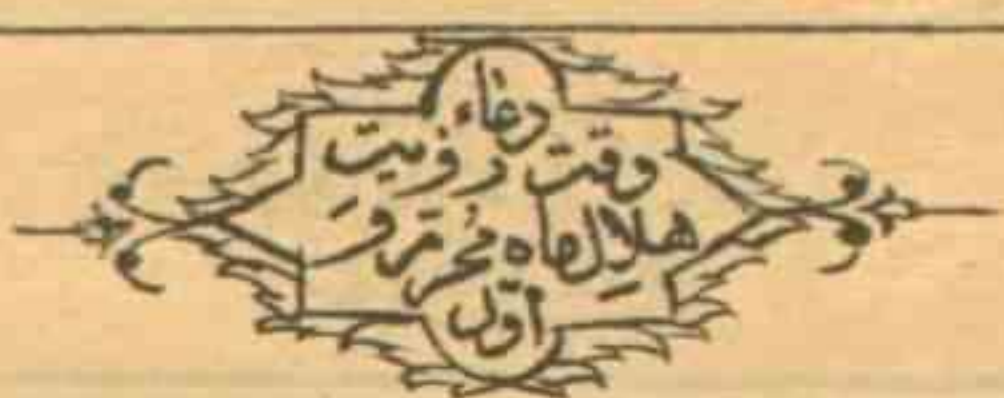 دعاء
وقت رؤیت
هلال ماه محرّم و
اوّل